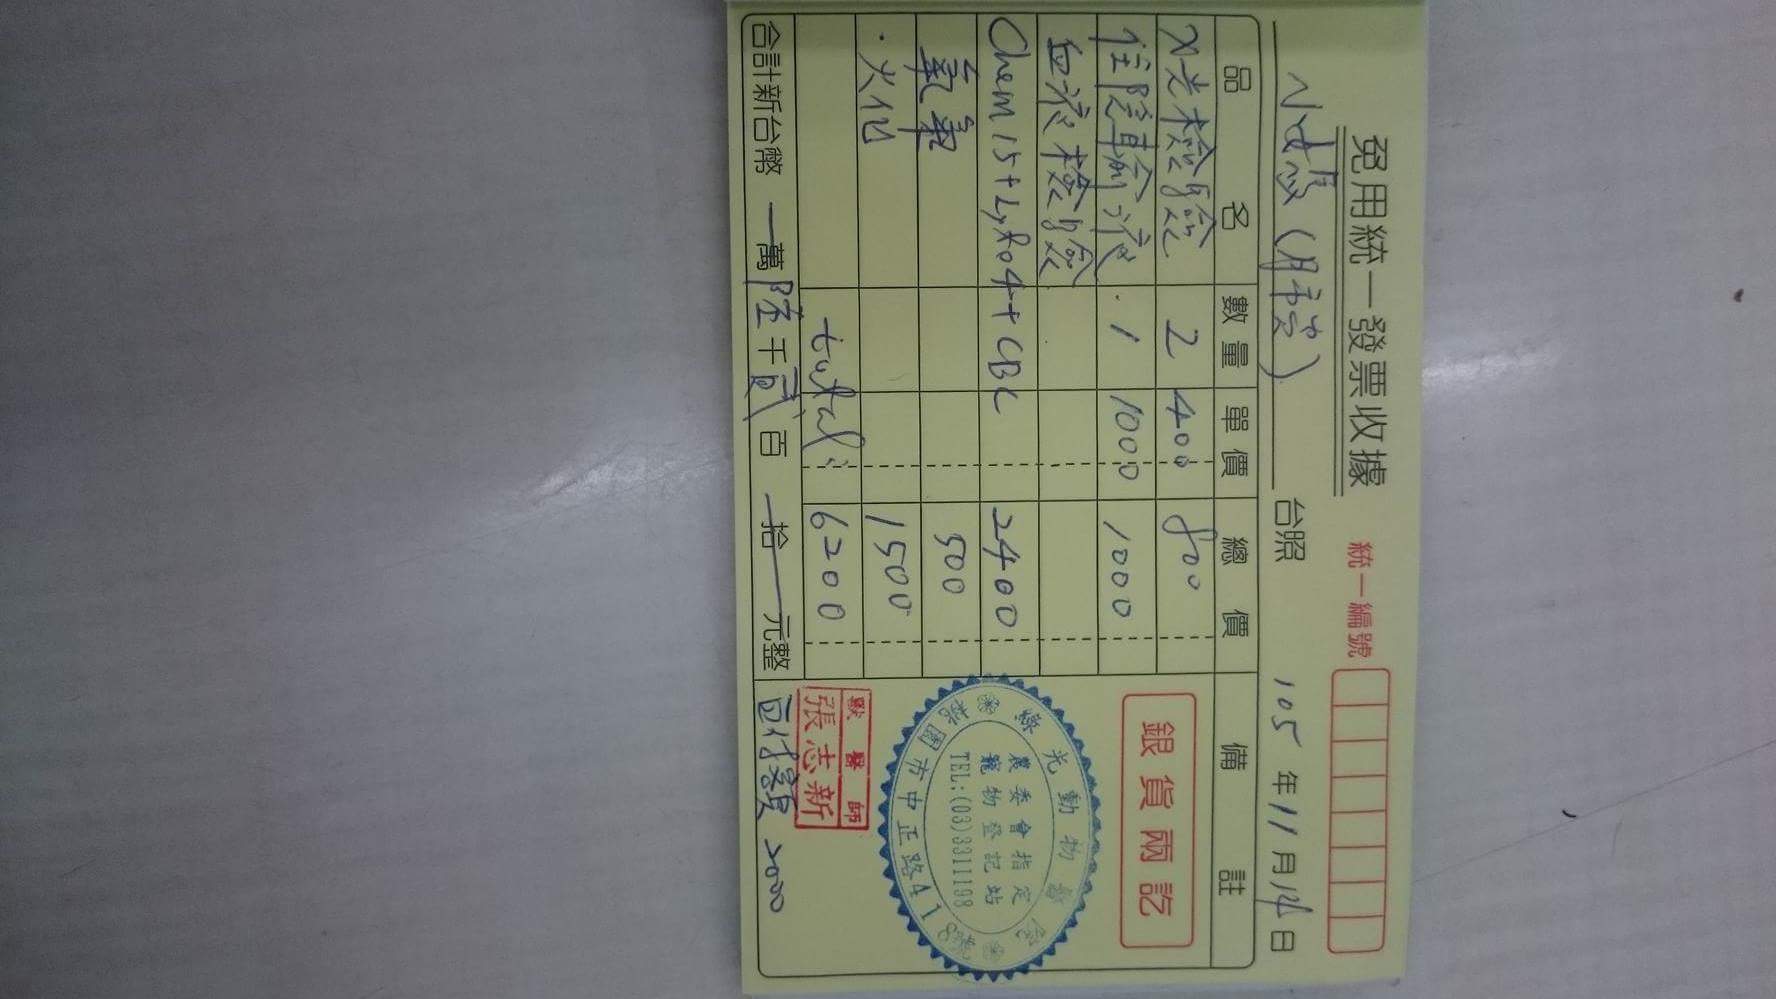 免用統一發票收據
統一編號
台照
105年11月14日
品名 數量 單價 總價 備註
X光檢驗 2 400 800
住院輸液 1 1000 1000
血液檢驗
Chem 15+Lyte4+CBC 2400
氧氣 500
火化 1500
total: 6200
合計新台幣 萬陸千貳百 拾 元整
銀貨兩訖
綠光動物醫院
農委會指定
寵物登記站
TEL:(03)3311198
桃園市中正路41
獸醫師
張志新
2000